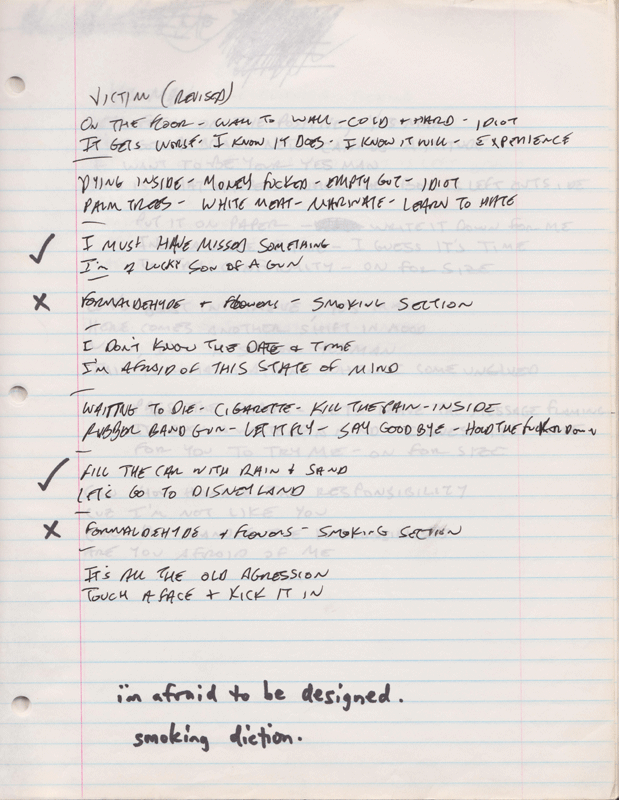 VICTIM (REVISED)
ON THE FLOOR - WALL TO WALL - COLD + HARD - IDIOT
IT GETS WORSE - I KNOW IT DOES - I KNOW IT WILL - EXPERIENCE
DYING INSIDE - MONEY FUCKED - EMPTY GUT - IDIOT
PALM TREES - WHITE MEAT - MARINATE - LEARN TO HATE
✓ I MUST HAVE MISSED SOMETHING
I'M A LUCKY SON OF A GUN
X FORMALDEHYDE + FLOWERS - SMOKING SECTION
I DON'T KNOW THE DATE & TIME
I'M AFRAID OF THIS STATE OF MIND
WAITING TO DIE - CIGARETTE - KILL THE PAIN - INSIDE
RUBBER BAND GUN - LET IT FLY - SAY GOODBYE - HOLD THE FUCKER DOWN
✓ FILL THE CAR WITH RAIN & SAND
LET'S GO TO DISNEYLAND
X FORMALDEHYDE + FLOWERS - SMOKING SECTION
IT'S ALL THE OLD AGRESSION
TOUCH A FACE + KICK IT IN
i'm afraid to be designed.
smoking diction.